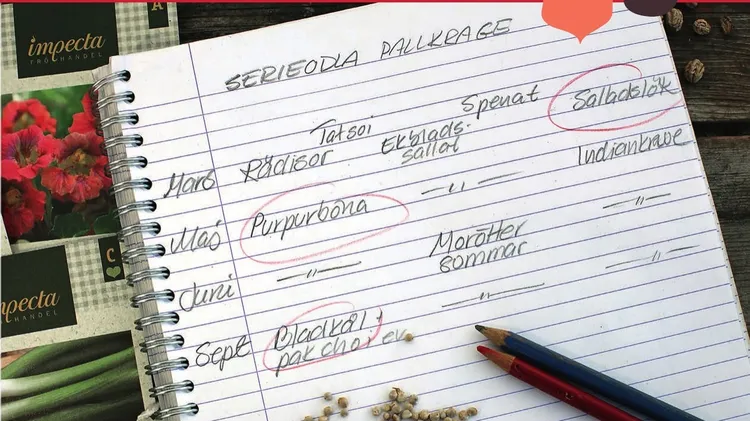 impecta
FRÖHANDEL
A
SERIEODLA PALLKRAGE
Tatsoi
Spenat
Salladslök
Mars Rädisor
Ekblads-
sallat
Indiankrasse
Maj
Purpurböna
— " —
— " —
Juni
— " —
Morötter
sommar
— " —
Sept
Bladkål
pak choi
— " —
C
impecta
HANDEL